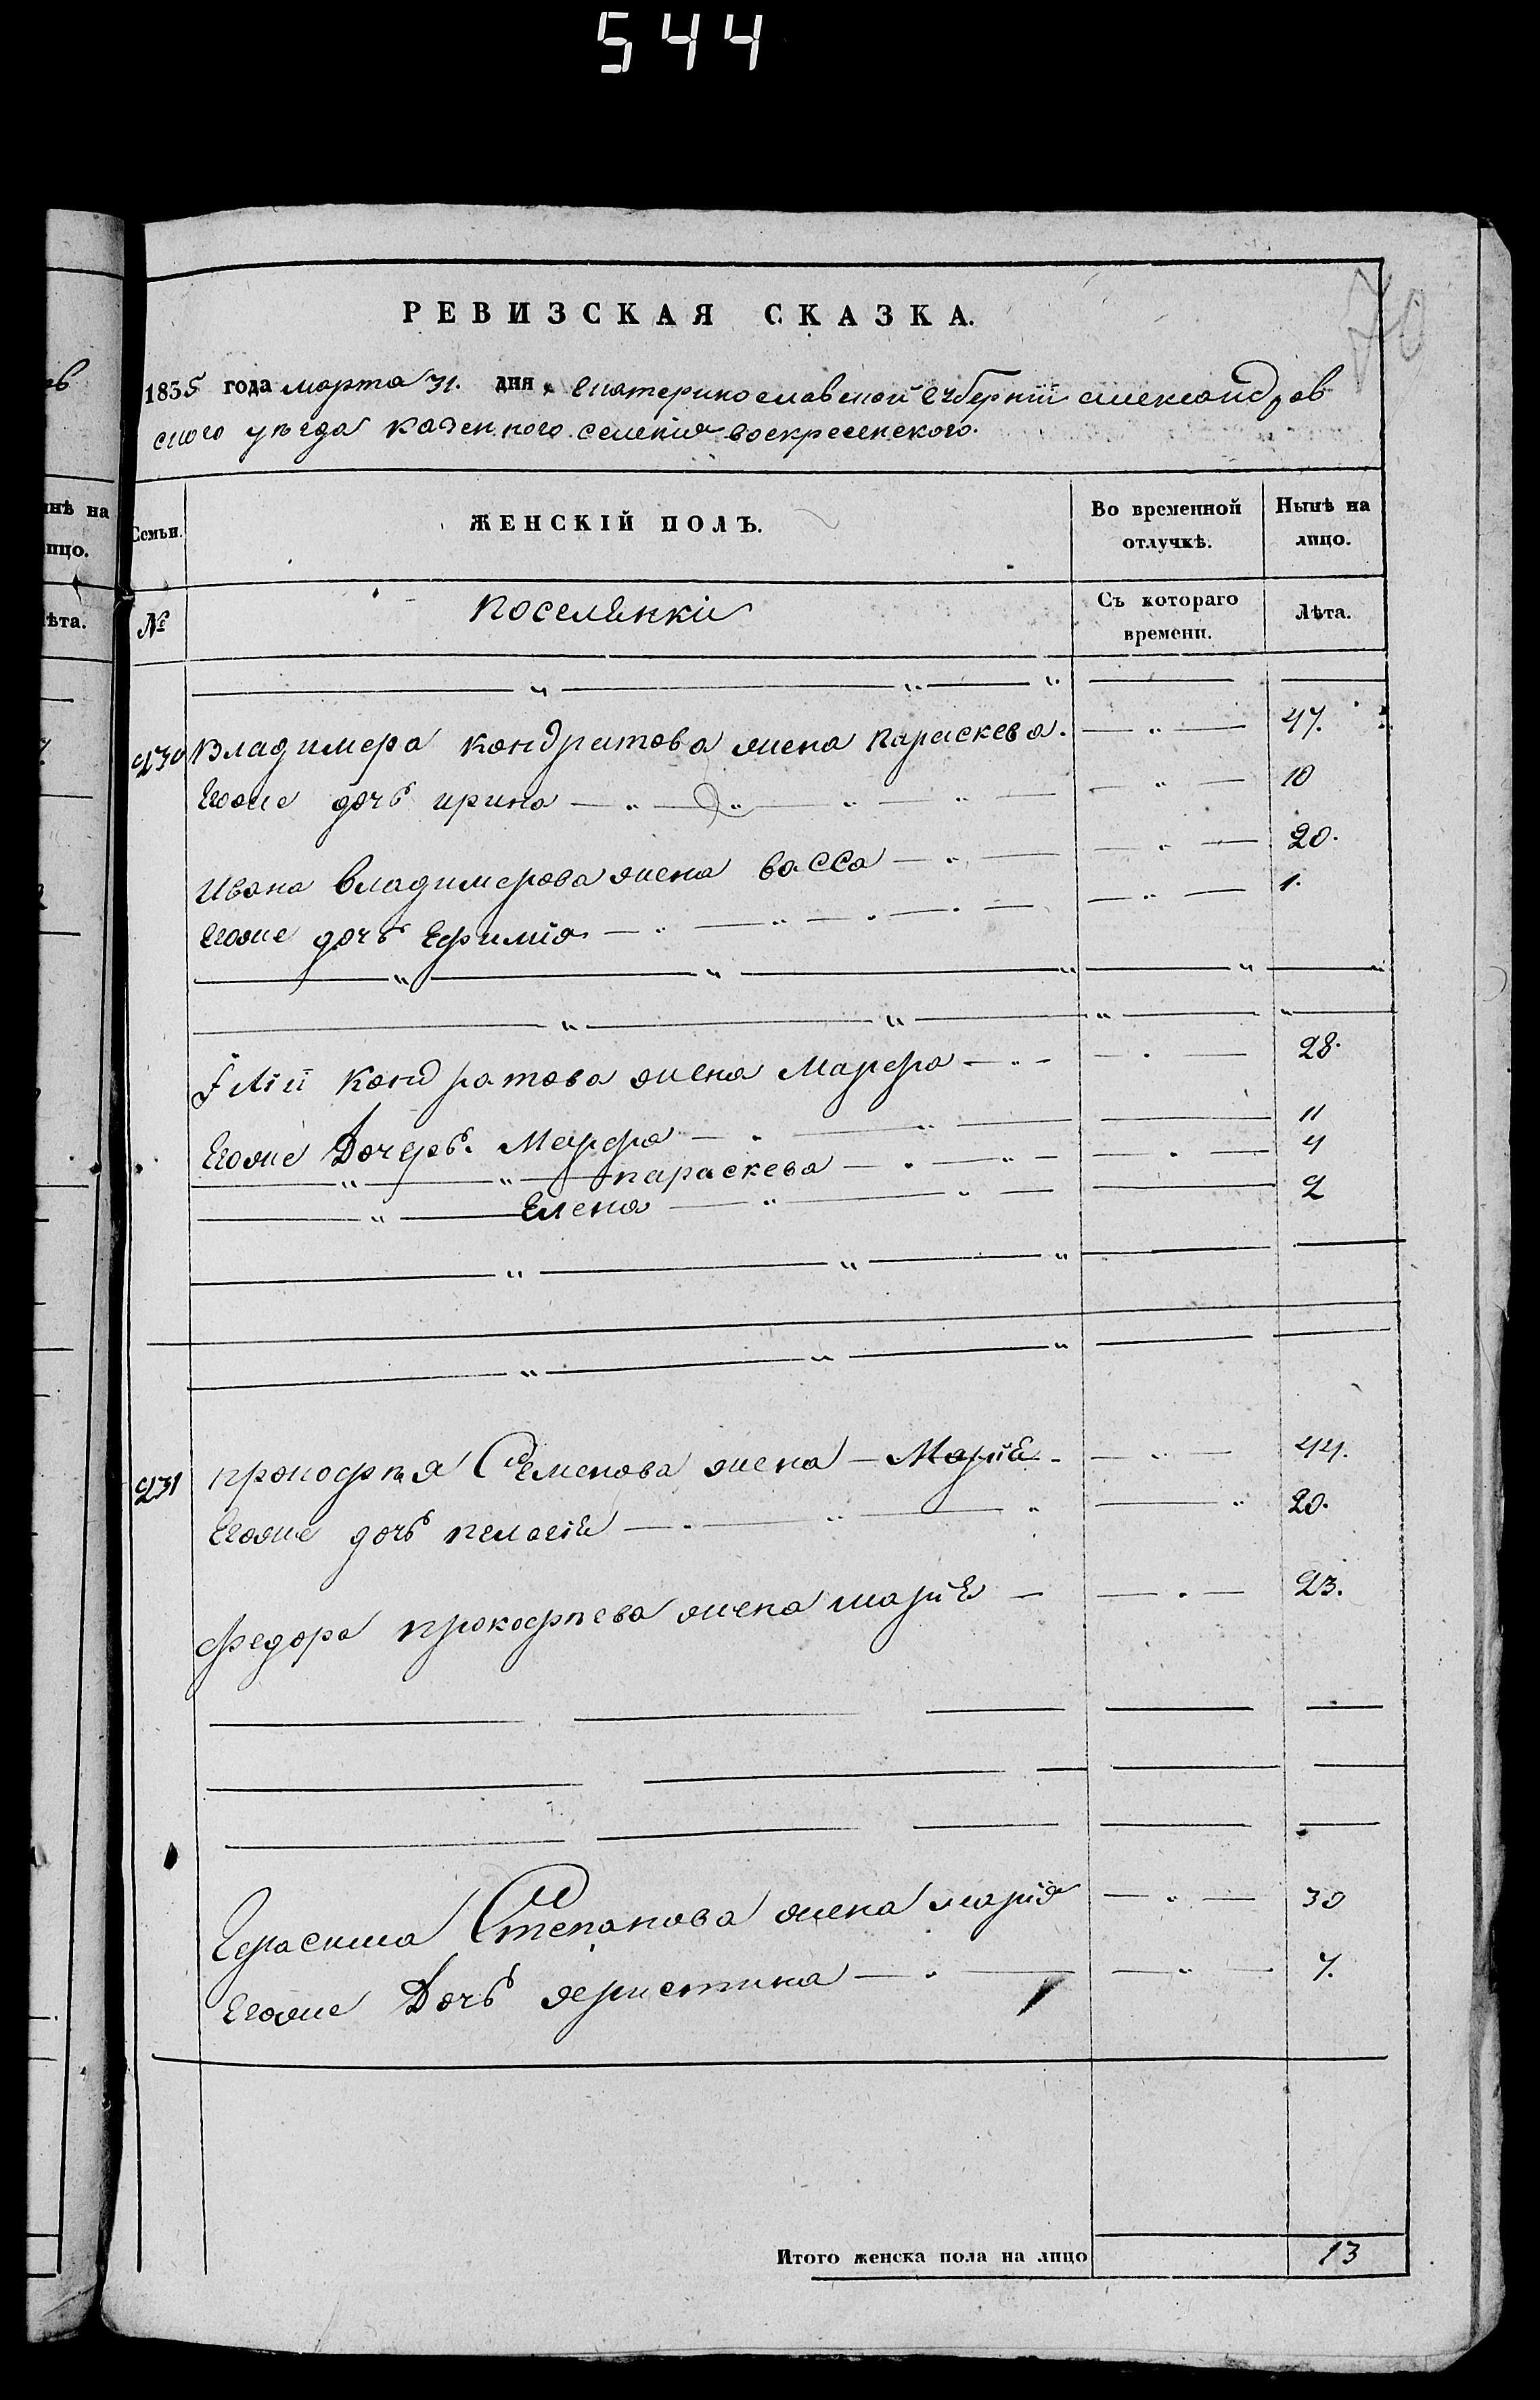 544
70
РЕВИЗСКАЯ СКАЗКА.
1835 года марта 31. дня, екатеринославской губернии александров
ского уезда казенного селения воскресенского.
Семьи. ЖЕНСКІЙ ПОЛЪ. Во временной отлучкѣ. Нынѣ на лицо.
№ Поселянки Съ котораго времени. Лѣта.
230 Владимера Кондратова жена Параскева. 47.
Егоже дочь ирина 10
Ивана владимерова жена васса 20.
Егоже дочь Ефимія 1.
Кондратова жена Марфа 28.
Егоже Дочерь. Марфа 11
параскева 4
Елена 2
231 прокофѣя Семенова жена Марія 44.
Егоже дочь пелагія 20.
Федора прокофѣева жена марія 23.
Герасима Степанова жена марія 30
Егоже Дочь христина 7.
Итого женска пола на лицо 13
нѣ на
лицо.
ѣта.